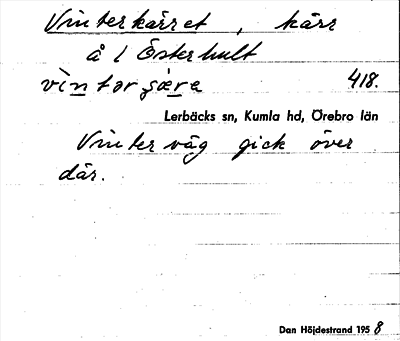 Vinterkärret, kärr
å l Österhult
vìntərɕæ̀rə 418.
Lerbäcks sn, Kumla hd, Örebro län
Vinterväg gick över
där.
Dan Höjdestrand 1958